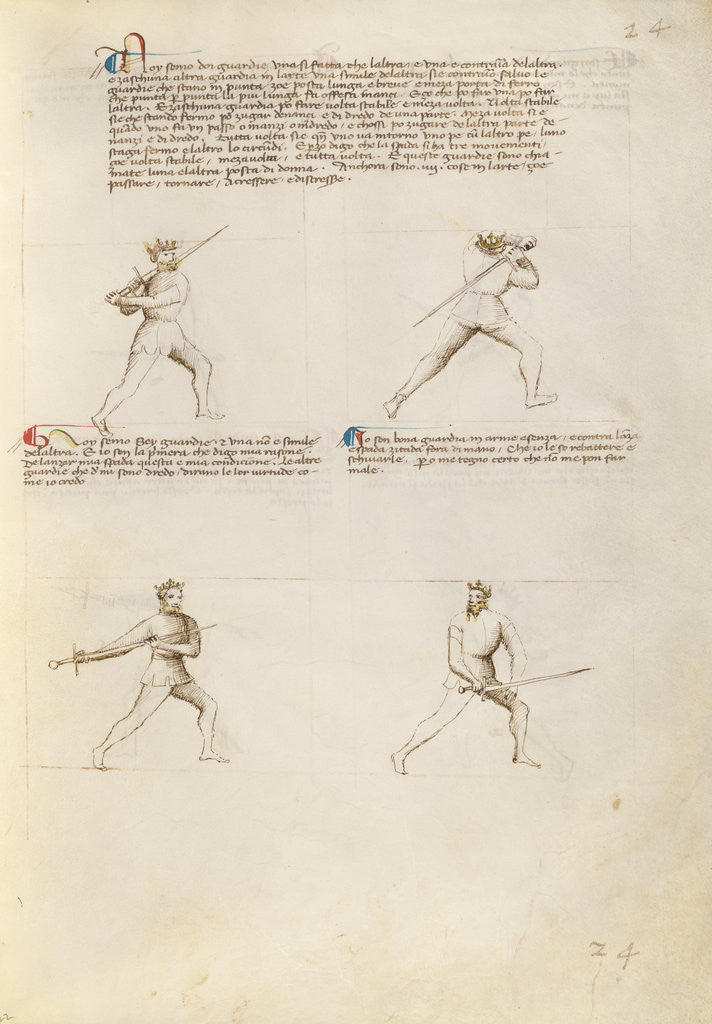 24
Noy semo doi guardie una si fatta che laltra, e una e contraria delaltra.
e zaschuna altra guardia in larte una simile delaltra si e contrario salvo le
guardie che stano in punta, zoe posta lunga e breve e meza porta di ferro
che punta per punta la più lunga fa offesa inanci. E zo che po far una po far
laltra. E zaschuna guardia po fare volta stabile e meza volta. Volta stabile
si e che stando fermo po zugar denanci e di dredo de una parte. Meza volta si e
quando uno fa un passo o inanzi o indredo, e chossi po zugare de laltra parte de
inanzi e di dredo. Tutta volta si e quando uno va intorno uno pe cum laltro pe, luno
staga fermo e laltro lo circundi. E perzo digo che la spada si ha tre movimenti,
zoe volta stabile, meza volta, e tutta volta. E queste guardie sono chia-
mate luna e laltra posta di donna. Anchora sono .iiij. cose in larte, zoe
passare, tornare, acressere, e discresse.
Noy semo Sey guardie, & una non e simile
delaltra. E io son la primera che digo mia rasone.
De lanzar mia spada questa e mia condicione. Le altre
guardie che de mi sono dredo, dirano le lor virtude co-
me io credo
Io son bona guardia in arme e senza, e contra lanza
e spada zitada fora di mano, Che io le so rebattere e
schivarle. Pero me tegno certo che non me pon far
male.
24